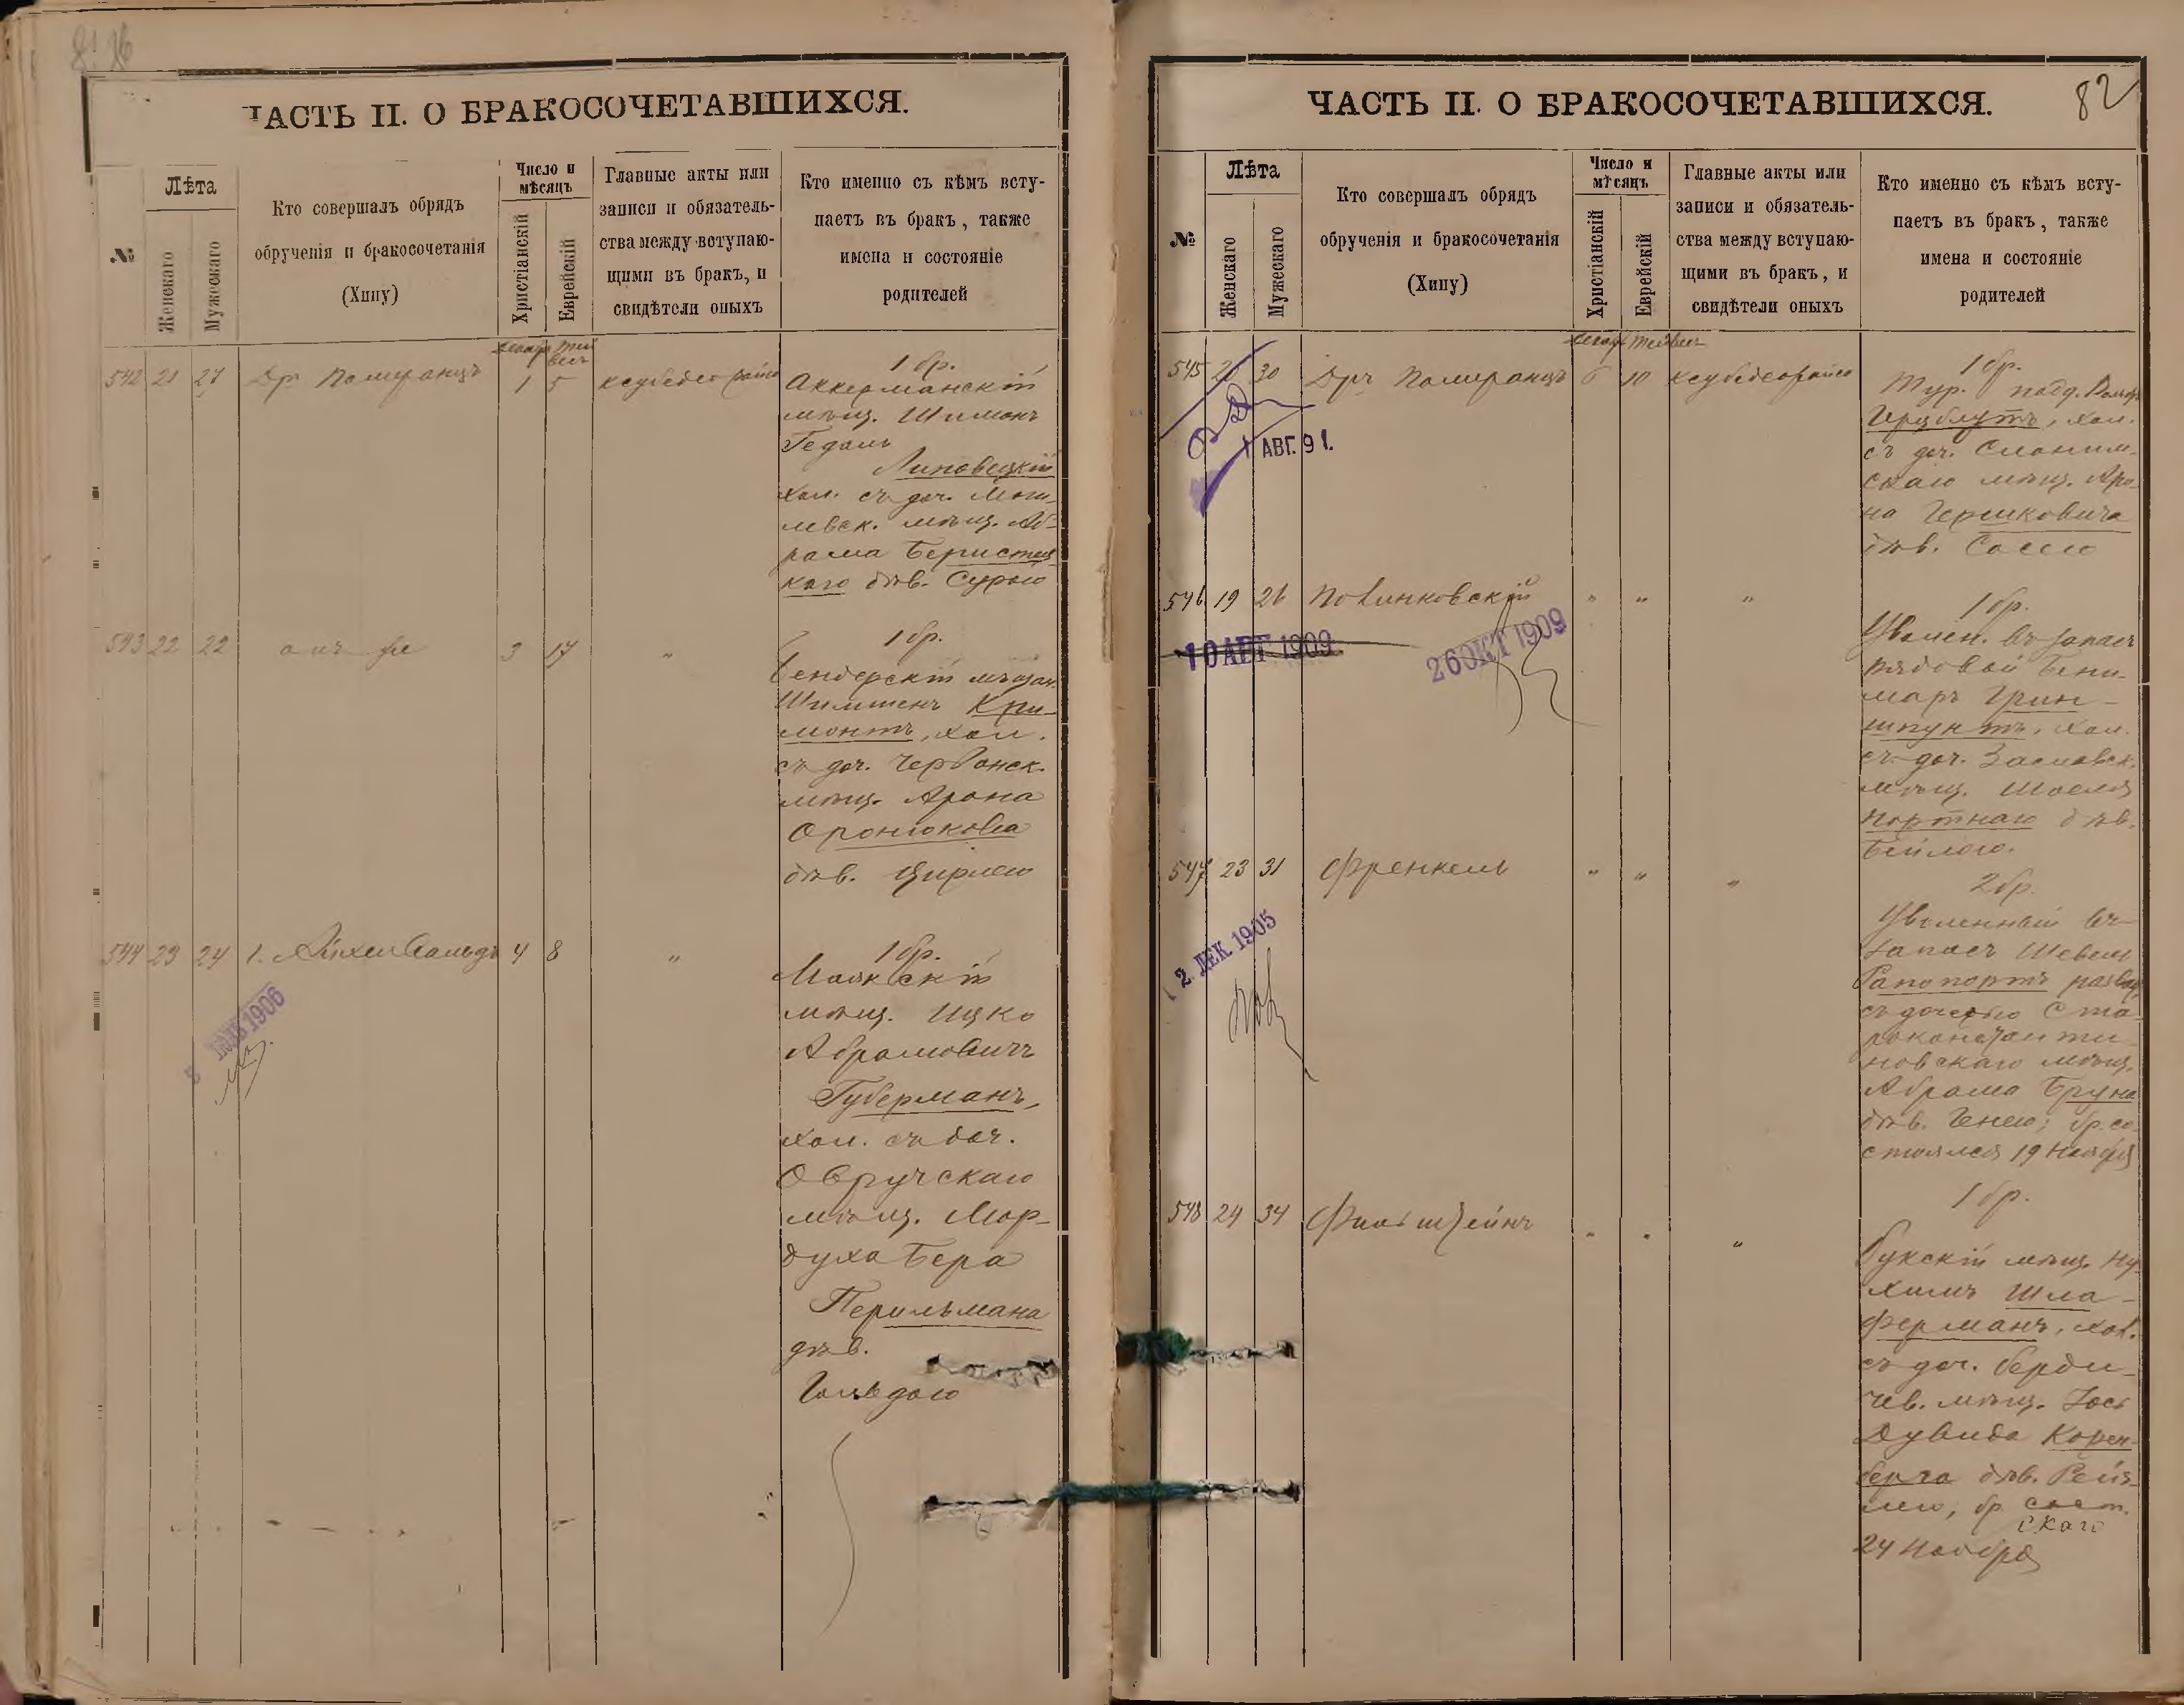 ЧАСТЬ II. О БРАКОСОЧЕТАВШИХСЯ.
№
Лѣта
Женскаго
Мужескаго
Кто совершалъ обрядъ
обрученія и бракосочетанія
(Хипу)
Число и
мѣсяцъ
Христіанскій
Еврейскій
Главные акты или
записи и обязатель-
ства между вступаю-
щими въ бракъ, и
свидѣтели оныхъ
Кто именно съ кѣмъ всту-
паетъ въ бракъ, также
имена и состояніе
родителей
542 21 27 Др. Померанцъ 1 5
1 бр.
Аккерманскій
мѣщ. Шимонъ
Гедаль
Липовецкій
хол. съ доч. Моги-
левск. мѣщ. Аб-
рама Беристец
каго дѣв. Сурою
543 22 22 онъ же 3 17 "
1 бр.
Бендерскій мѣщан.
Кри-
монтъ, хол.
съ доч. Червонск.
мѣщ. Арона
Оронюкова
дѣв. Цирлею
544 23 24 4 8 "
ЯНВ 1906
1 бр.
Маякскій
мѣщ. Ицко
Абрамовичъ
Губерманъ,
хол. съ доч.
Овручскаго
мѣщ. Мор-
духа Бера
Перильмана
дѣв.
Гольдою
82
ЧАСТЬ II. О БРАКОСОЧЕТАВШИХСЯ.
№
Лѣта
Женскаго
Мужескаго
Кто совершалъ обрядъ
обрученія и бракосочетанія
(Хипу)
Число и
мѣсяцъ
Христіанскій
Еврейскій
Главные акты или
записи и обязатель-
ства между вступаю-
щими въ бракъ, и
свидѣтели оныхъ
Кто именно съ кѣмъ всту-
паетъ въ бракъ, также
имена и состояніе
родителей
545 30 Дръ Померанцъ 6 10
1 АВГ. 91.
1 бр.
Тур. подд.
Герцблутъ, хол.
съ доч. Слоним-
скаго мѣщ. Аро-
на Гершковича
дѣв. Сосею
546 19 26 Повинковскій " " "
10 АВГ 1909
26 ОКТ 1909
1 бр.
Уволен. въ запасъ
рядовой Бени-
маръ Грин-
шпунтъ, хол.
съ доч. Заславск.
мѣщ. Шоеля
Портнаго дѣв.
Бейлою.
547 23 31 Френкель " " "
2 ДЕК. 1905
2 бр.
Уволенный въ
запасъ Шевель
Рапопортъ развед.
съ дочерью Ста-
роконстанти-
новскаго мѣщ.
Абрама Бруна
дѣв. Генею; бр. со-
стоялся 19 Ноября
548 24 34 Фильштейнъ " " "
1 бр.
Букскій мѣщ. Ну-
химъ Шла-
ферманъ, хол.
съ доч. Берди-
чев. мѣщ. Іось
Дувида Корен-
берга дѣв. Рейз-
лею, бр. сост.
24 Ноября